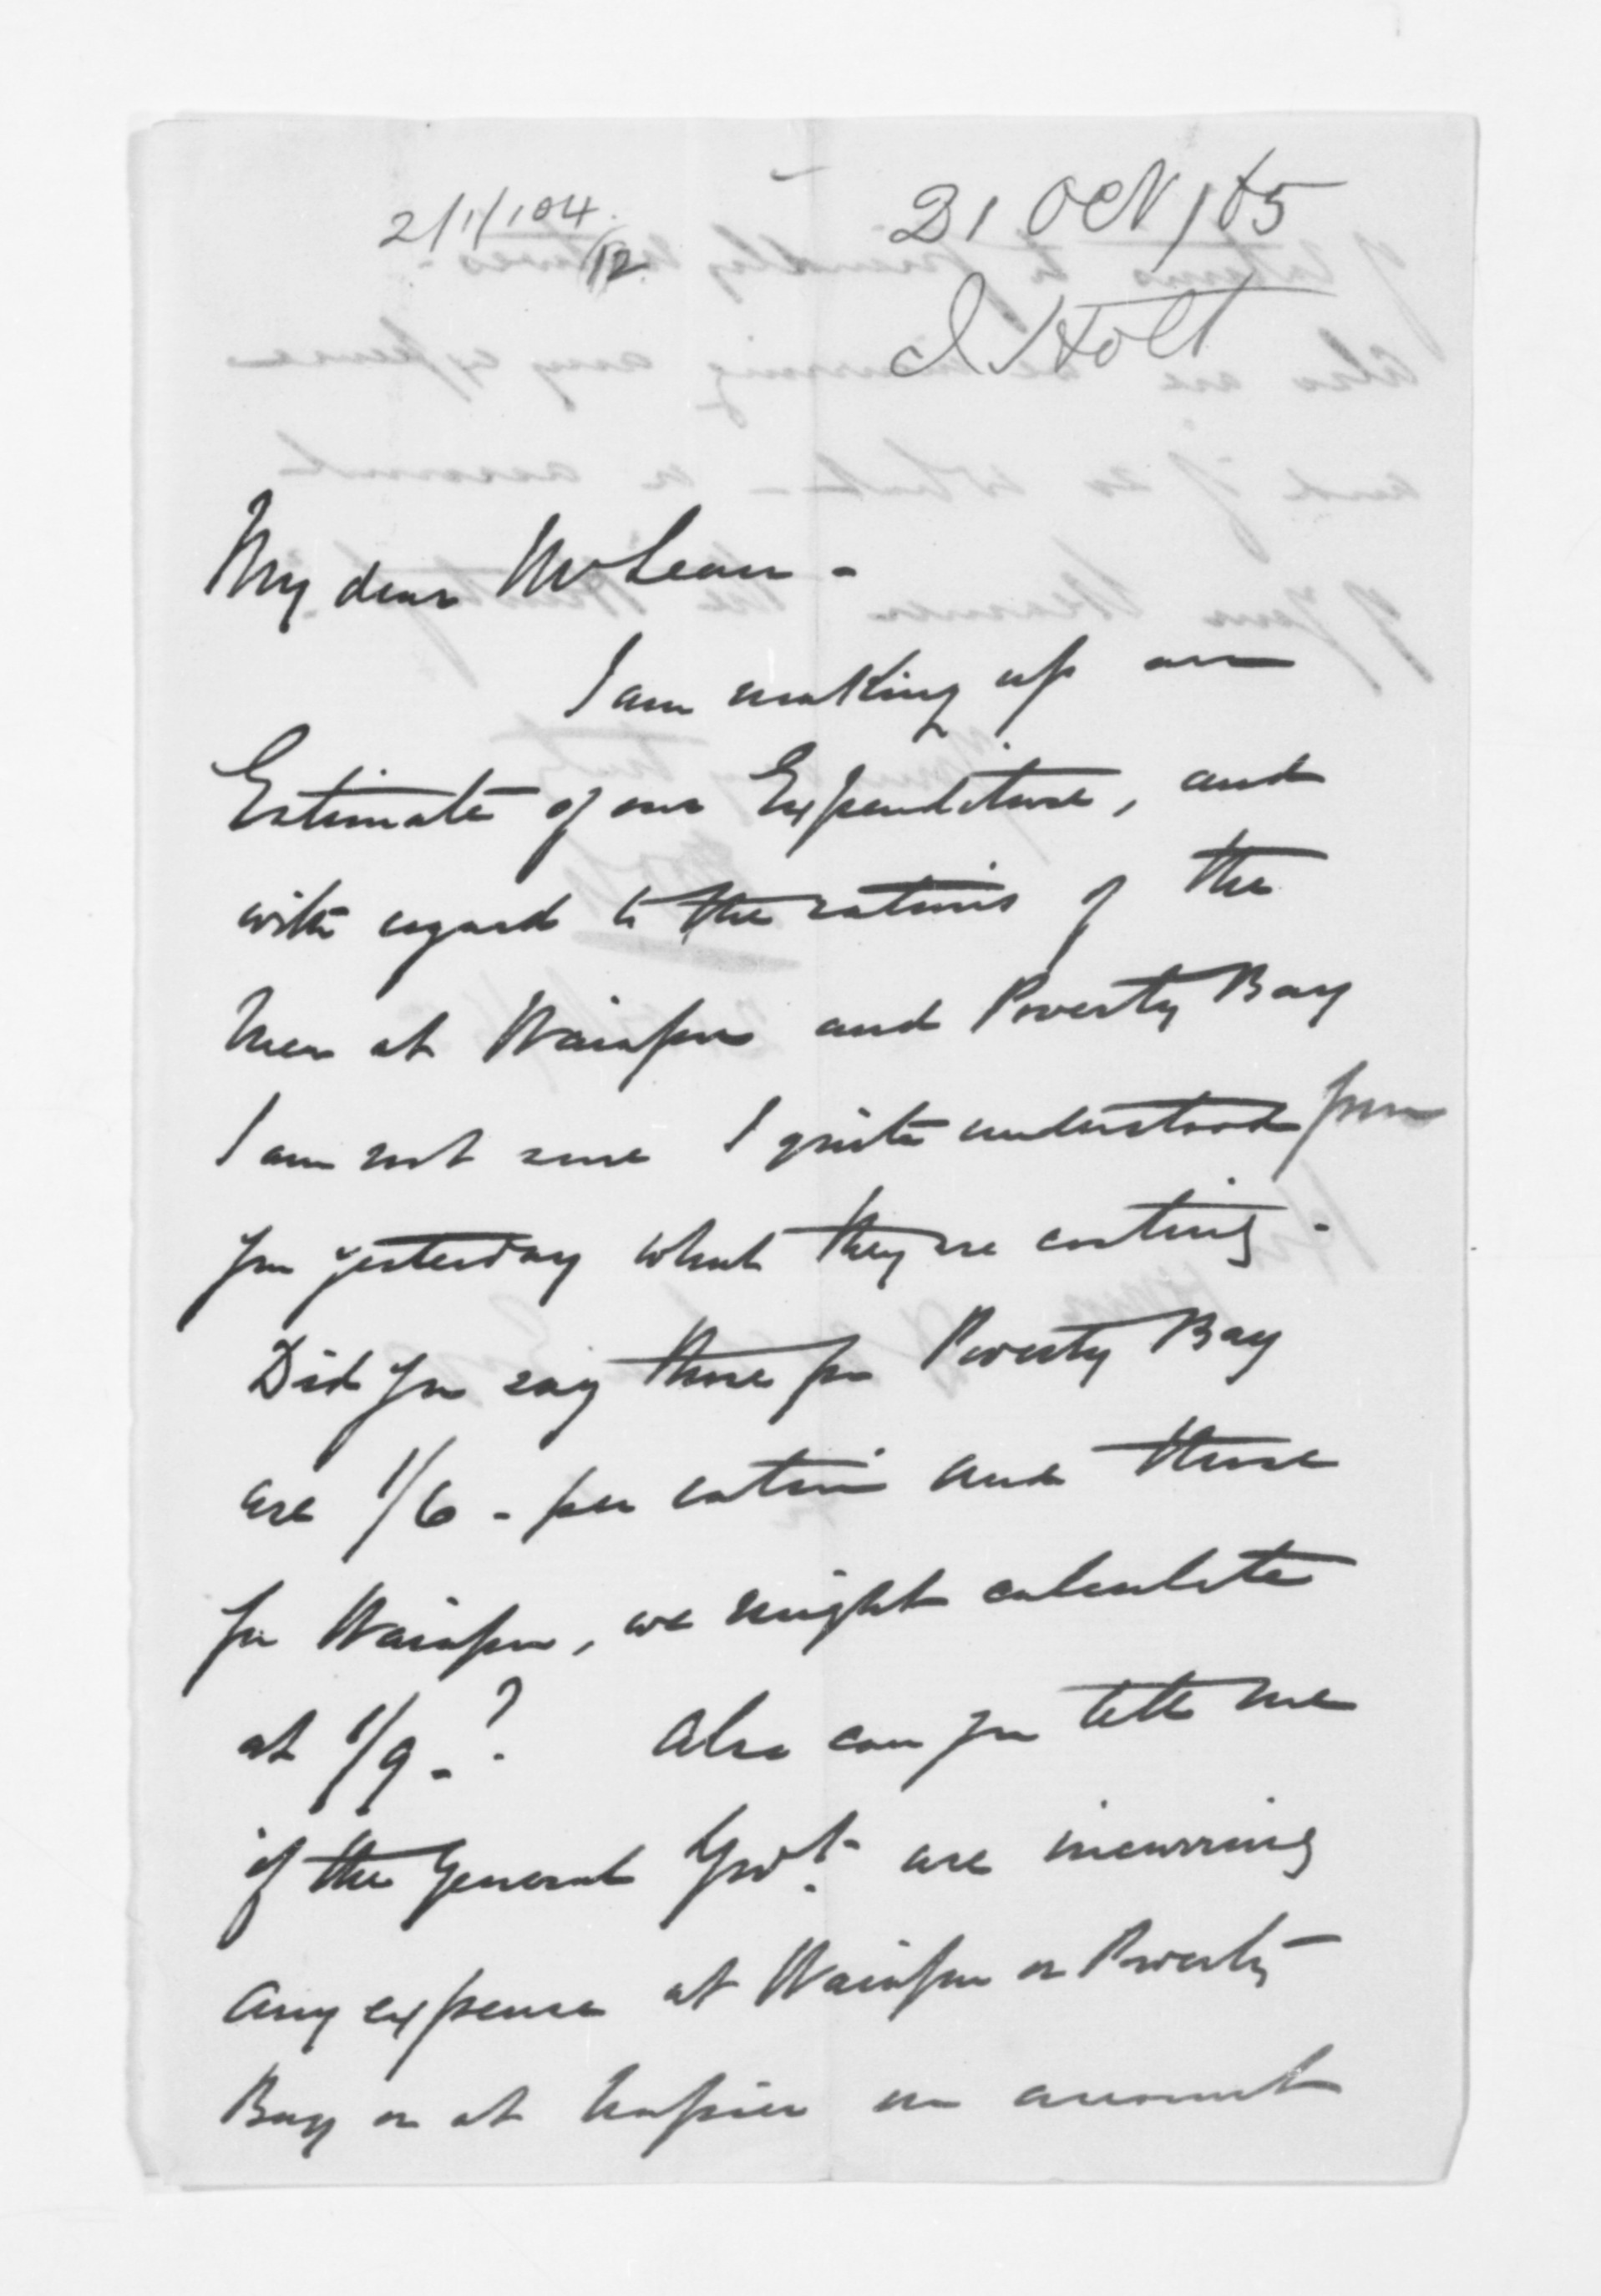 2/1/104.
/12.
31 Oct / 65
J Holt
My dear McLean -
I am making up an
Estimate of our Expenditure, and
with regard to the rations of the
Men at Waiapu and Poverty Bay
I am not sure I quite understood from
you yesterday what they are costing -
Did you say those for Poverty Bay
are 1/6 - per ration and those
for Waiapu, we might calculate
at 1/9 - ? Also can you tell me
if the General Govt. are incurring
any expense at Waiapu or Poverty
Bay or at Napier on account